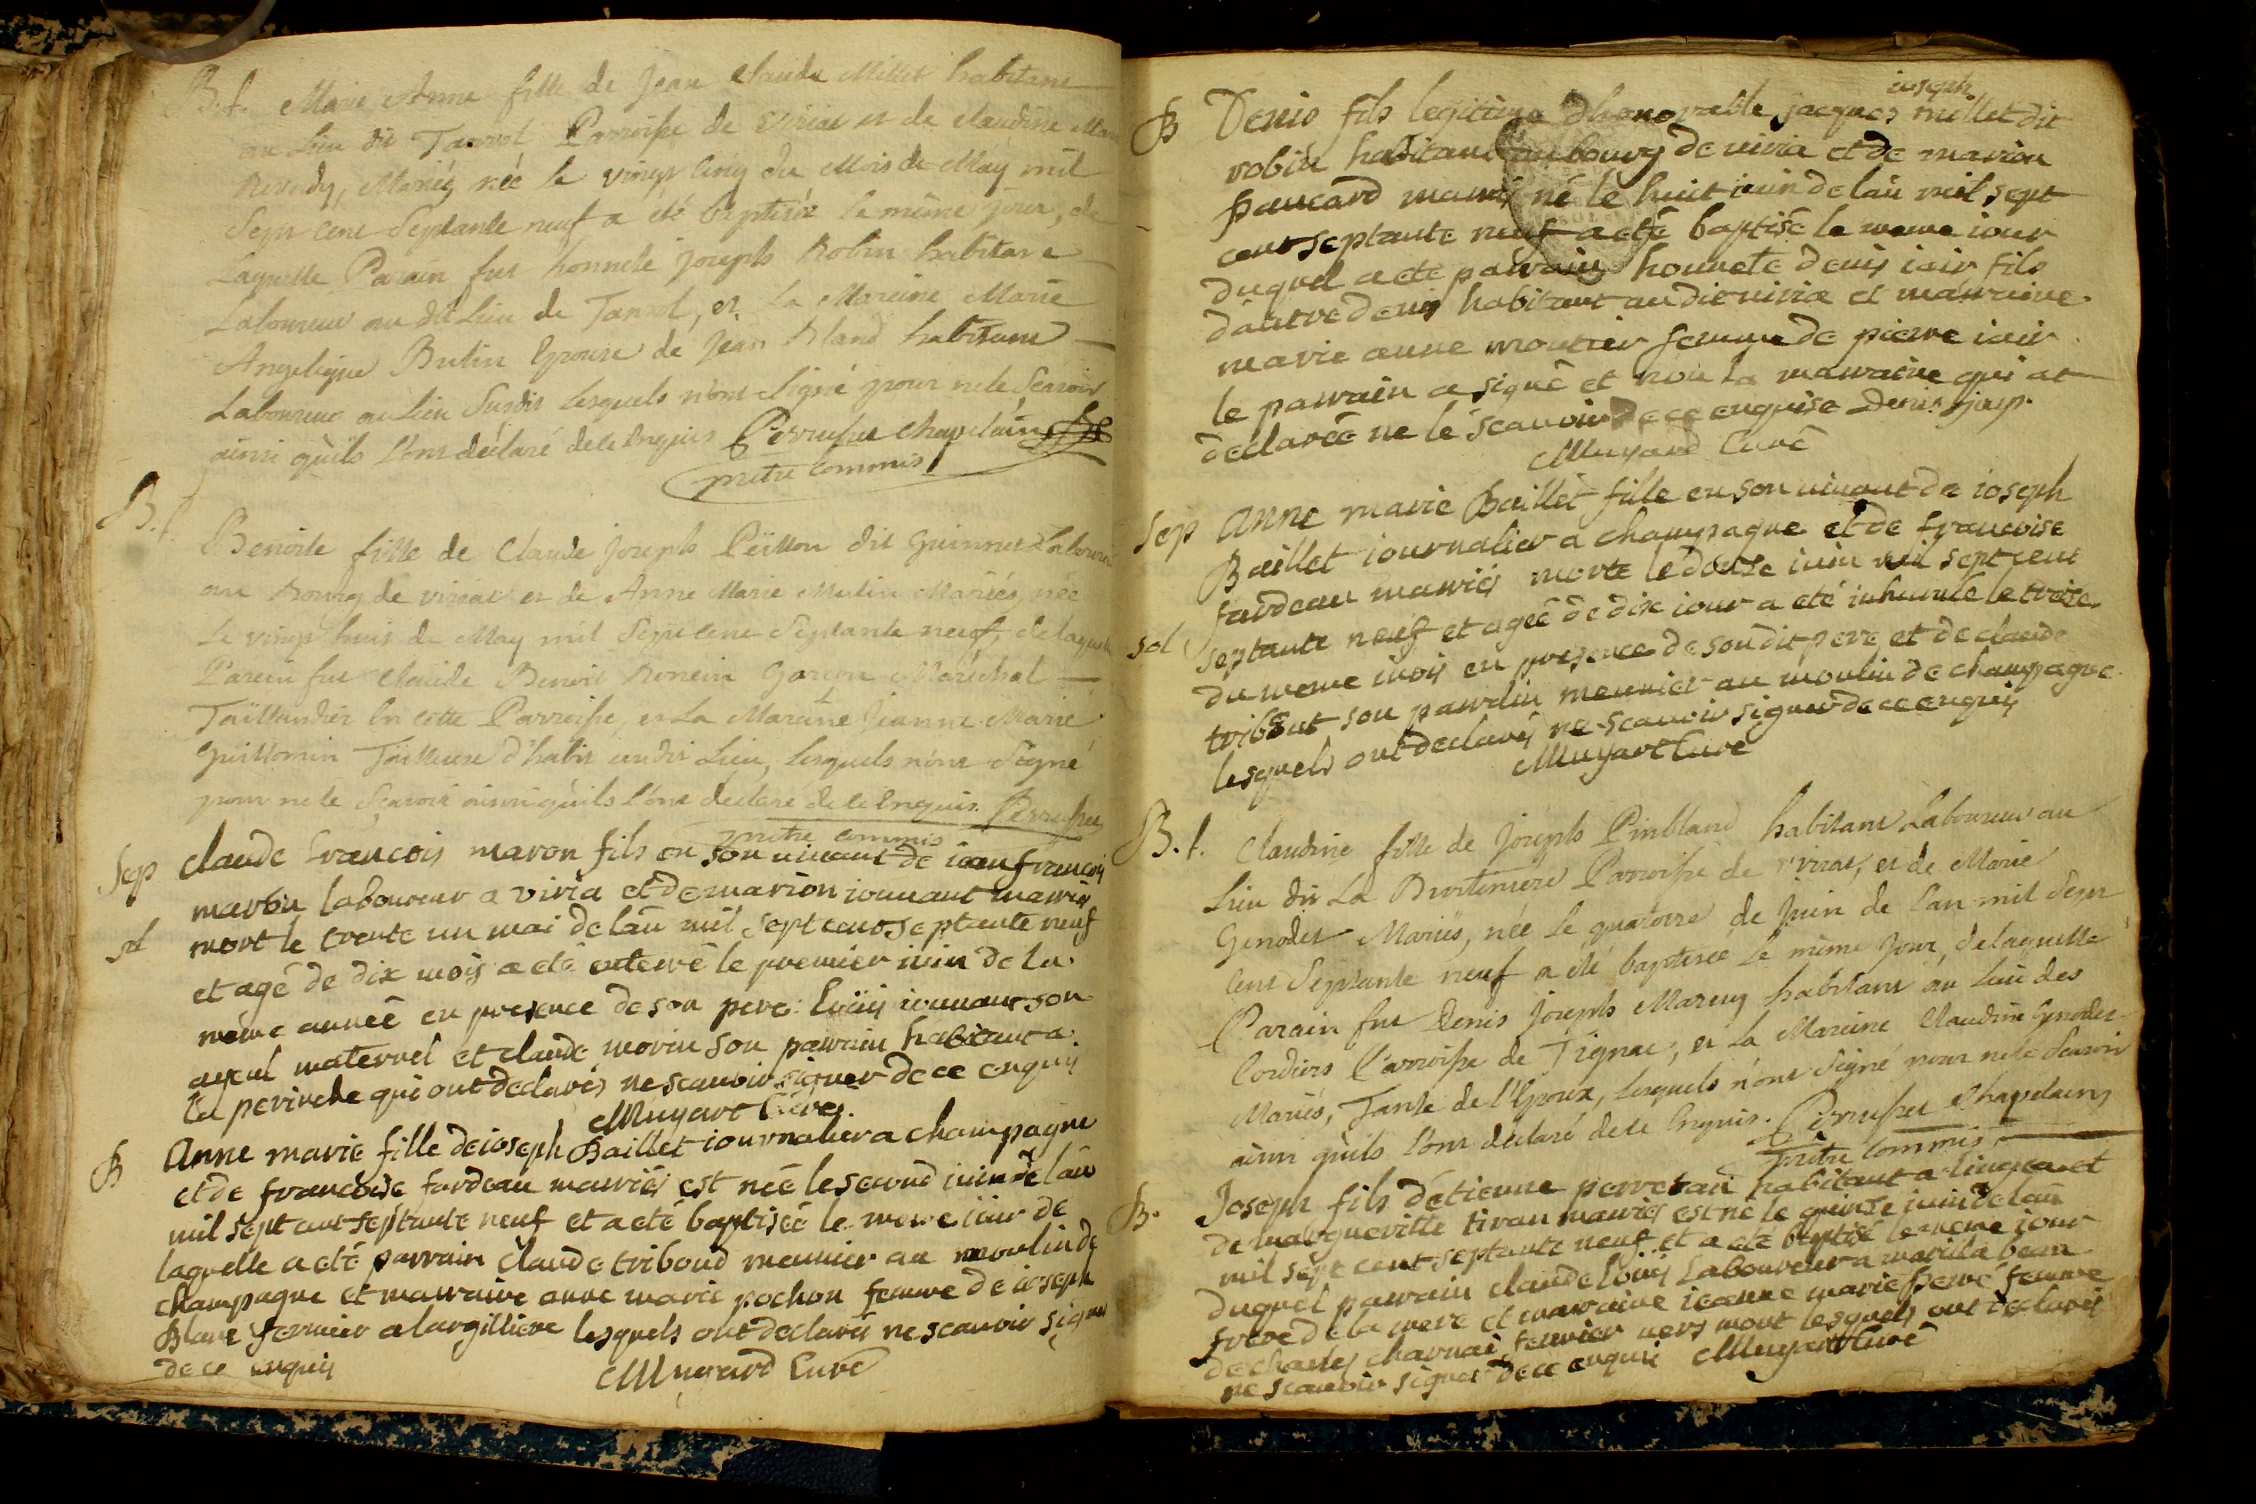 B. f. Marie Anne fille de Jean Claude Millet habitant
au Lieu dit Tanvol Parroisse de viriat et de Claudine
Mariés née le vingt cinq du Mois de May mil
Sept cent Septante neuf a été baptisée le même jour, de
Laquelle Parain fut honnete joseph Robin habitant
Laboureur au dit Lieu de Tanvol, et La Mareine Marie
Angelique Butin Epouse de Jean Bland habitant
Laboureur au Lieu Susdit Lesquels n'ont Signé pour ne le Scavoir
ainsi qu'ils l'ont déclaré de ce Enquis Perruset chapelain
prêtre commis
B. f.
Benoite fille de Claude Joseph Peïllon dit Guinnet Laboureur
au Bourg de viriat et de Anne Marie Mutin Mariés, née
Le vingt huit de May mil Sept cent Septante neuf, de laquelle
Parein fut Claude Benoit Garçon Maréchal
Taillandier en cette Parroisse, et La Mareine Jeanne Marie
Guillomin Tailleuse d'habit audit Lieu, Lesquels n'ont Signé
pour ne le Scavoir ainsi qu'ils l'ont déclaré de ce Enquis. Perruset
prêtre commis
Sep claude francois maron fils en son vivant de iean francois
maron laboureur a viria et de marion iouvant mariés
sol mort le trente un mai de lan mil sept cent septante neuf
et agé de dix mois a eté enterré le premier iuin de la
même année en presence de son pere: loüis iouvant son
ayeul maternel et claude morin son parrain habitant a
la perinche qui ont declarés ne scauvoir signer de ce enquis
Muyart Curé
B Anne marie fille de ioseph Baillet iournalier a champagne
et de francoise fardeau mariés est née le second iuin de lan
mil sept cent septante neuf et a eté baptisée le meme iour de
laquelle a eté parrain claude triboud meunier au moulin de
champagne et marraine anne marie pochon femme de ioseph
Blanc fermier a largilliere lesquels ont declarés ne scauvoir signer
de ce enquis Muyard Curé
ioseph
B Denis fils legitime d'honorable jacques millet dit
robin habitant au bourg de viria et de marion
paucard mariés né le huit iuin de lan mil sept
cent septante neuf a eté baptisé le meme iour
duquel a eté parrain honnete denis ioir fils
d'autre denis habitant au dit viria et marraine
marie anne moutier femme de pierre ioir
le parrain a signé et non la marraine qui at
declarée ne le scauvoir de ce enquise Denis
Muyard Curé
Sep Anne marie Baillet fille en son vivant de ioseph
Baillet iournalier a champagne et de francoise
fardeau mariés morte le douze iuin mil sept cent
sol septante neuf et agée de dix iour a eté inhumée le treize
du meme mois en presence de son dit pere et de claude
tribout son parrain meunier au moulin de champagne
lesquels ont declarés ne scauvoir signer de ce enquis
Muyart Curé
B. f. Claudine fille de Joseph Pinbland habitant Laboureur au
Lieu dit La Parroisse de viriat, et de Marie
Genodet Mariés, née Le quatorze de Juin de l'an mil Sept
cent Septante neuf a été baptisée Le même Jour, de laquelle
Parain fut Denis Joseph habitant au Lieu des
Cordiers Parroisse de Jignac, et La Mareine Claudine Genodet
Mariés, Tante de l'Epoux, Lesquels n'ont Signé pour ne le Scavoir
ainsi qu'ils l'ont déclaré de ce Enquis. Perruset Chapelain
Prêtre Commis
B. Joseph fils d'etienne habitant a lingea et
de tivan mariés est né le quinze iuin de lan
mil sept cent septante neuf et a eté baptisé le meme iour
duquel parrain claude loüis laboureur a
frere de la mere et marraine ieanne marie femme
de charles charnai fermier vers mont lesquels ont declarés
ne scauvoir signer de ce enquis Muyart Curé